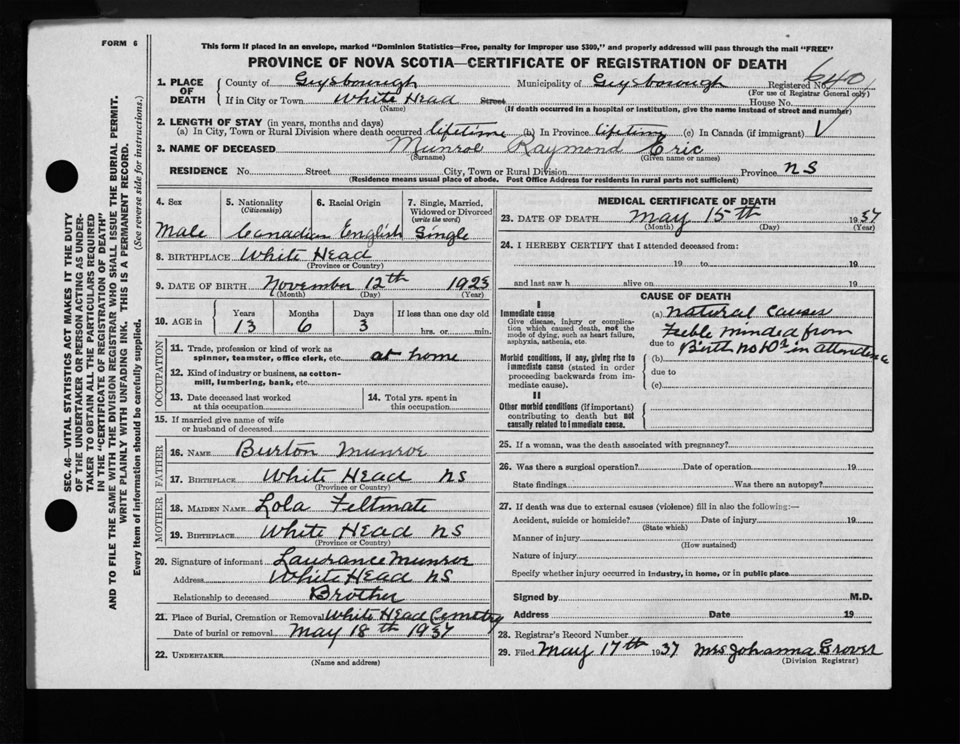 FORM 6
This form if placed in an envelope, marked "Dominion Statistics—Free, penalty for improper use $300," and properly addressed will pass through the mail "FREE"
PROVINCE OF NOVA SCOTIA—CERTIFICATE OF REGISTRATION OF DEATH
1. PLACE OF DEATH
County of Guysborough Municipality of Guysborough Registered No. 640
(For use of Registrar General only)
If in City or Town White Head Street House No.
(Name) (If death occurred in a hospital or institution, give the name instead of street and number)
2. LENGTH OF STAY (in years, months and days)
(a) In City, Town or Rural Division where death occurred lifetime (b) In Province lifetime (c) In Canada (if immigrant)
3. NAME OF DECEASED Munroe Raymond Eric
(Surname) (Given name or names)
RESIDENCE No. Street City, Town or Rural Division Province NS
(Residence means usual place of abode. Post Office Address for residents in rural parts not sufficient)
4. Sex Male
5. Nationality (Citizenship) Canadian
6. Racial Origin English
7. Single, Married, Widowed or Divorced (write the word) Single
8. BIRTHPLACE White Head
(Province or Country)
9. DATE OF BIRTH November 12th 1923
(Month) (Day) (Year)
10. AGE in Years 13 Months 6 Days 3 If less than one day old hrs. or min.
OCCUPATION
11. Trade, profession or kind of work as spinner, teamster, office clerk, etc. at home
12. Kind of industry or business, as cotton-mill, lumbering, bank, etc.
13. Date deceased last worked at this occupation
14. Total yrs. spent in this occupation
15. If married give name of wife or husband of deceased
FATHER
16. NAME Burton Munroe
17. BIRTHPLACE White Head NS
(Province or Country)
MOTHER
18. MAIDEN NAME Lola Feltmate
19. BIRTHPLACE White Head NS
(Province or Country)
20. Signature of informant Laurance Munroe
Address White Head NS
Relationship to deceased Brother
21. Place of Burial, Cremation or Removal White Head Cemetry
Date of burial or removal May 18th 1937
22. UNDERTAKER
(Name and address)
MEDICAL CERTIFICATE OF DEATH
23. DATE OF DEATH May 15th 1937
(Month) (Day) (Year)
24. I HEREBY CERTIFY that I attended deceased from:
19 to 19
and last saw h alive on 19
CAUSE OF DEATH
I
Immediate cause
Give disease, injury or complication which caused death, not the mode of dying, such as heart failure, asphyxia, asthenia, etc.
(a) Natural Causes
Feble minded from
due to Birth no Dr in attendence
Morbid conditions, if any, giving rise to immediate cause (stated in order proceeding backwards from immediate cause).
(b)
due to
(c)
II
Other morbid conditions (if important) contributing to death but not causally related to immediate cause.
25. If a woman, was the death associated with pregnancy?
26. Was there a surgical operation? Date of operation 19
State findings Was there an autopsy?
27. If death was due to external causes (violence) fill in also the following:—
Accident, suicide or homicide? Date of injury 19
(State which)
Manner of injury
(How sustained)
Nature of injury
Specify whether injury occurred in industry, in home, or in public place
Signed by M.D.
Address Date 19
28. Registrar's Record Number
29. Filed May 17th 1937 Mrs Johanna Grover
(Division Registrar)
SEC. 46—VITAL STATISTICS ACT MAKES IT THE DUTY
OF THE UNDERTAKER OR PERSON ACTING AS UNDER-
TAKER TO OBTAIN ALL THE PARTICULARS REQUIRED
IN THE "CERTIFICATE OF REGISTRATION OF DEATH"
AND TO FILE THE SAME WITH THE DIVISION REGISTRAR WHO SHALL ISSUE THE BURIAL PERMIT.
WRITE PLAINLY WITH UNFADING INK. THIS IS A PERMANENT RECORD.
Every item of information should be carefully supplied. (See reverse side for instructions.)